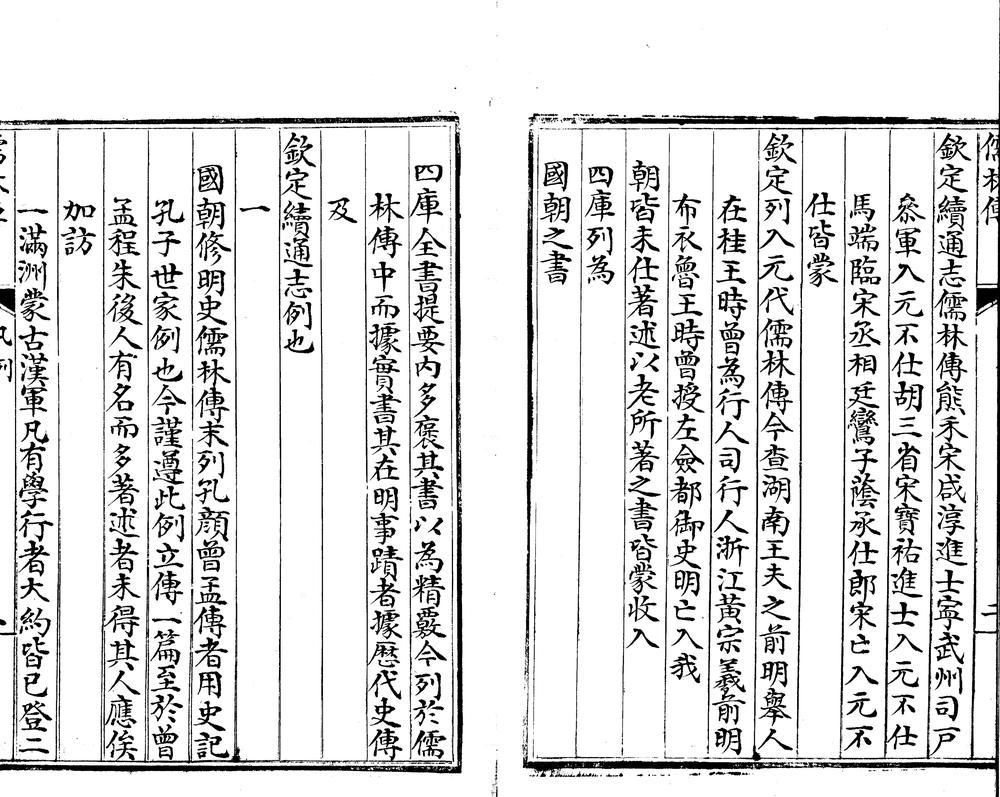 儒林傳
二
欽定續通志儒林傳熊禾宋咸淳進士寧武州司戸
叅軍入元不仕胡三省宋寶祐進士入元不仕
馬端臨宋丞相廷鸞子蔭承仕郎宋亡入元不
仕皆蒙
欽定列入元代儒林傳今查湖南王夫之前明舉人
在桂王時曾為行人司行人浙江黃宗羲前明
布衣魯王時曾授左僉都御史明亡入我
朝皆未仕著述以老所著之書皆蒙收入
四庫列為
國朝之書
四庫全書提要内多褒其書以為精覈今列於儒
林傳中而據實書其在明事蹟者據歷代史傳
及
欽定續通志例也
一
國朝修明史儒林傳末列孔顔曾孟傳者用史記
孔子世家例也今謹遵此例立傳一篇至於曾
孟程朱後人有名而多著述者未得其人應俟
加訪
一滿洲蒙古漢軍凡有學行者大約皆已登二
凡例